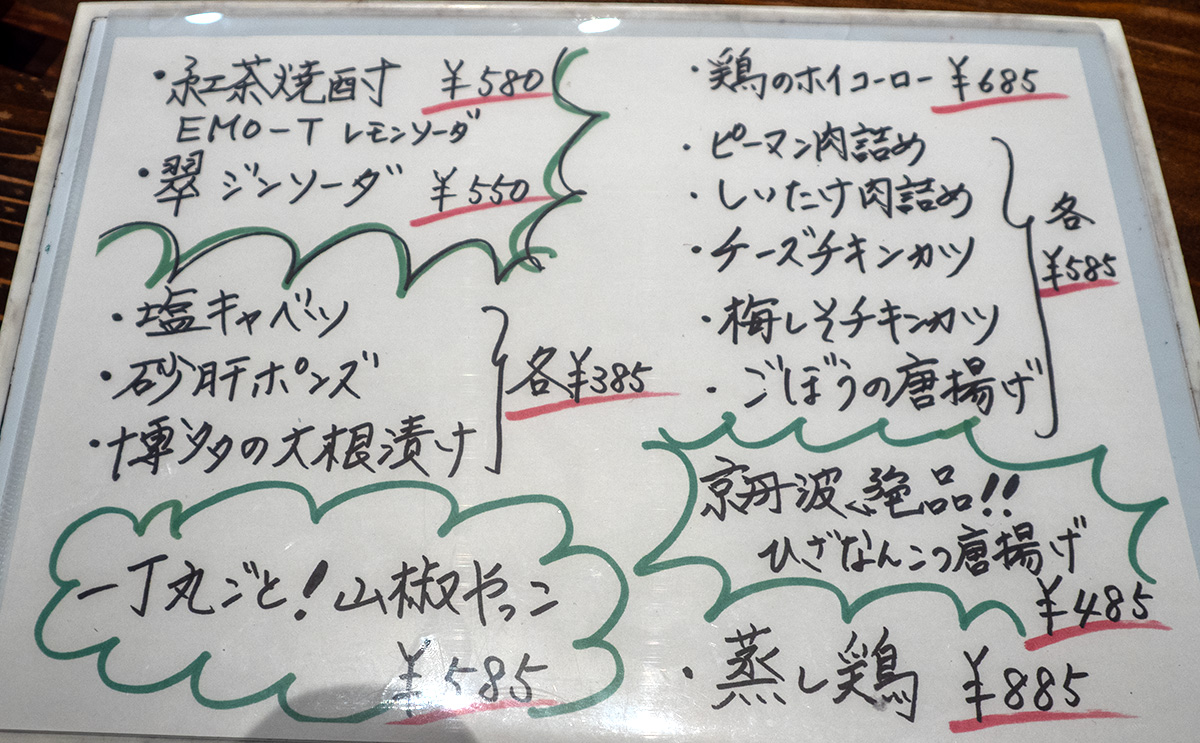 ・紅茶焼酎 ¥580
EMO-T レモンソーダ
・翠 ジンソーダ ¥550
・塩キャベツ
・砂肝ポンズ
・博多の大根漬け
各¥385
一丁丸ごと!山椒やっこ
¥585
・鶏のホイコーロー ¥685
・ピーマン肉詰め
・しいたけ肉詰め
・チーズチキンカツ
・梅しそチキンカツ
・ごぼうの唐揚げ
各
¥585
京丹波で絶品!!
ひざなんこつ唐揚げ
¥485
・蒸し鶏 ¥885